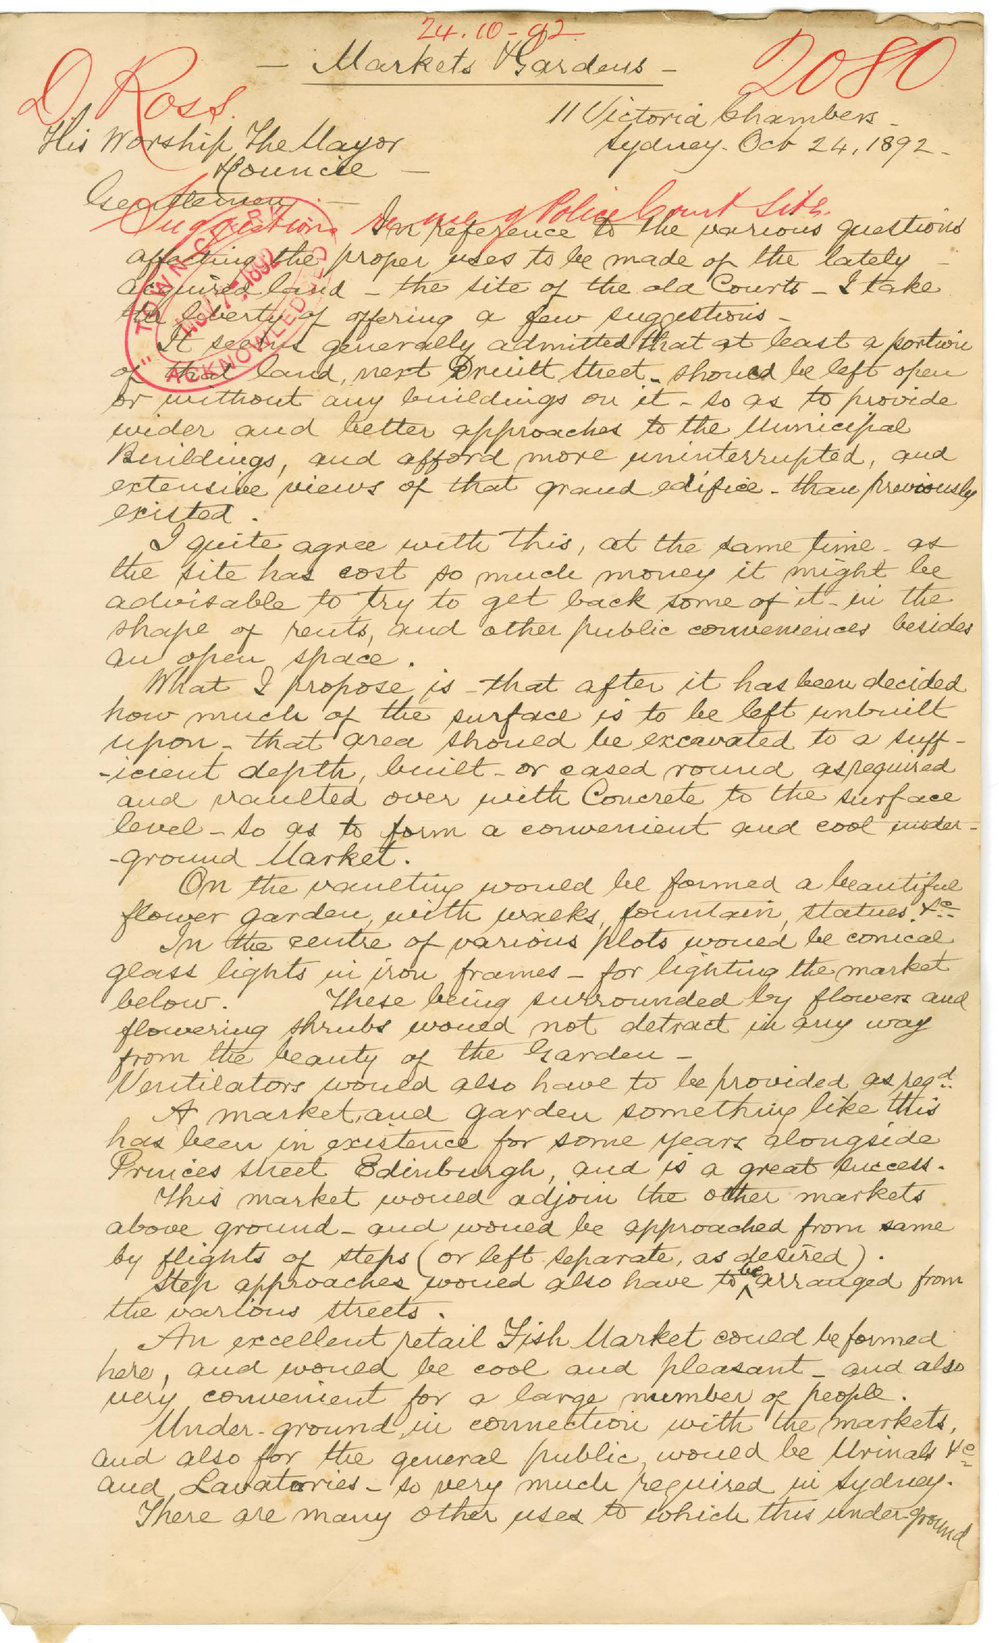 24.10-92
— Markets & Gardens —
D Ross.
2080
11 Victoria Chambers —
His Worship The Mayor
Sydney. Oct 24, 1892 —
& Council —
Gentlemen —
Suggestions re use of Police Court Site.
In reference to the various questions
affecting the proper uses to be made of the lately —
acquired land — the site of the old Courts — I take
the liberty of offering a few suggestions —
TOWN CLERK
1892
ACKNOWLEDGED
It seems generally admitted that at least a portion
of that land, next Druitt Street — should be left open
or without any buildings on it — so as to provide
wider and better approaches to the Municipal
Buildings, and afford more uninterrupted, and
extensive views of that grand edifice — than previously
existed.
I quite agree with this, at the same time — as
the site has cost so much money it might be
advisable to try to get back some of it — in the
shape of rents, and other public conveniences besides
an open space.
What I propose is — that after it has been decided
how much of the surface is to be left unbuilt
upon — that area should be excavated to a suff-
-icient depth, built — or cased round as required
and vaulted over with Concrete to the surface
level — so as to form a convenient and cool under-
-ground Market.
On the vaulting would be formed a beautiful
flower garden, with walks, fountain, statues. &c
In the centre of various plots would be conical
glass lights in iron frames — for lighting the market
below. These being surrounded by flowers and
flowering shrubs would not detract in any way
from the beauty of the Garden —
Ventilators would also have to be provided as reqd.
A market, and garden something like this
has been in existence for some years alongside
Princes street Edinburgh, and is a great success.
This market would adjoin the other markets
above ground — and would be approached from same
by flights of steps (or left separate, as desired).
Step approaches would also have to be arranged from
the various streets.
An excellent retail Fish Market could be formed
here, and would be cool and pleasant — and also
very convenient for a large number of people.
Under-ground, in connection with the markets,
and also for the general public, would be Urinals &c
and Lavatories — so very much required in Sydney.
There are many other uses to which this under-ground